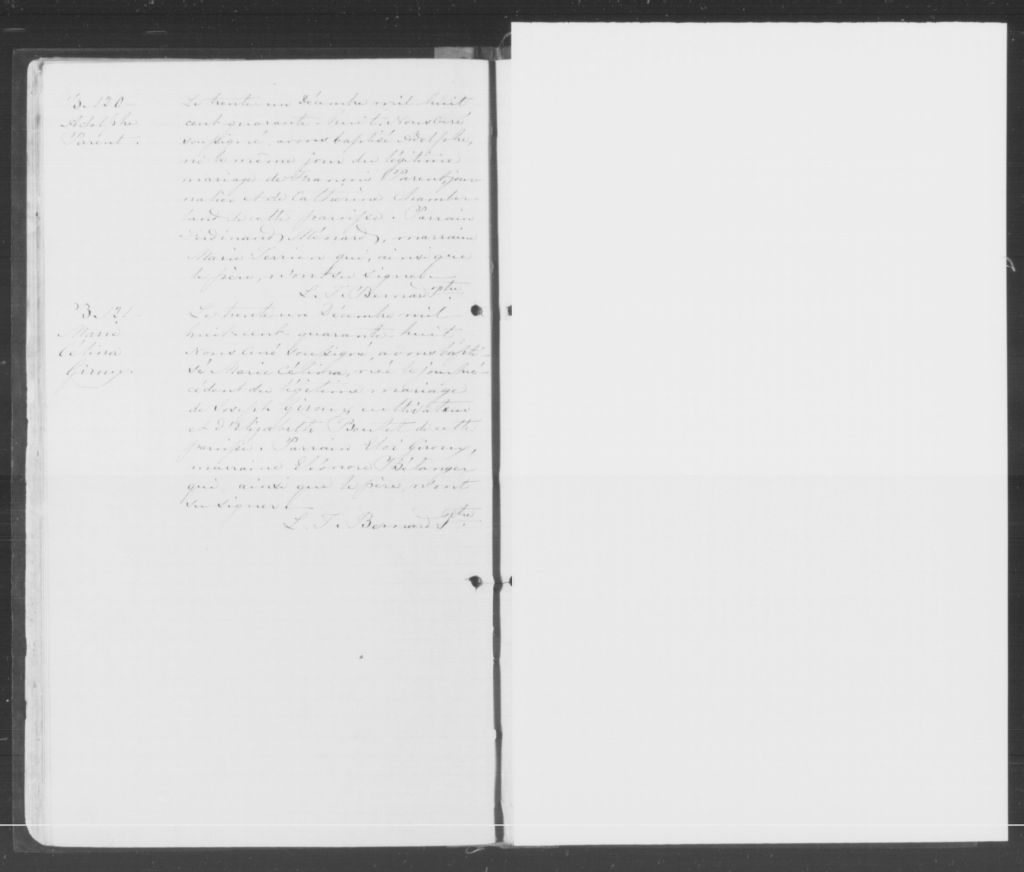 B. 120
Adolphe
Parent.
Le trente un Décembre mil huit
cent quarante-huit, Nous curé
soussigné, avons baptisé Adolphe,
né le même jour du légitime
mariage de François Parent jour
nalier et de Catherine Chamber
land de cette paroisse. Parrain
Ferdinand Ménard, marraine
Marie Terrien qui, ainsi que
le père, n'ont su signer.
L. T. Bernard ptre.
B. 121
Marie
Célina
Giroux.
Le trente un Décembre mil
huit cent quarante-huit,
Nous curé soussigné, avons bapti-
sé Marie Célina, née le jour pré-
cédent du légitime mariage
de Joseph Giroux, cultivateur
et d'Elizabeth Boutet de cette
paroisse. Parrain Eloi Giroux,
marraine Eléonore Bélanger
qui, ainsi que le père, n'ont
su signer.
L. T. Bernard ptre.